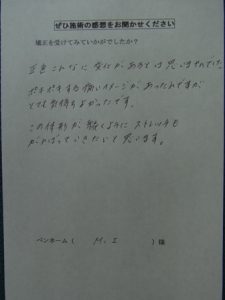 ぜひ施術の感想をお聞かせください
矯正を受けてみていかがでしたか？
正直こんなに変化があるとは思いませんでした。
ボキボキする痛いイメージがあったんですが
とても気持ちよかったです。
この体形が続くように ストレッチも
がんばっていきたいと思います。
ペンネーム（ M.I ）様